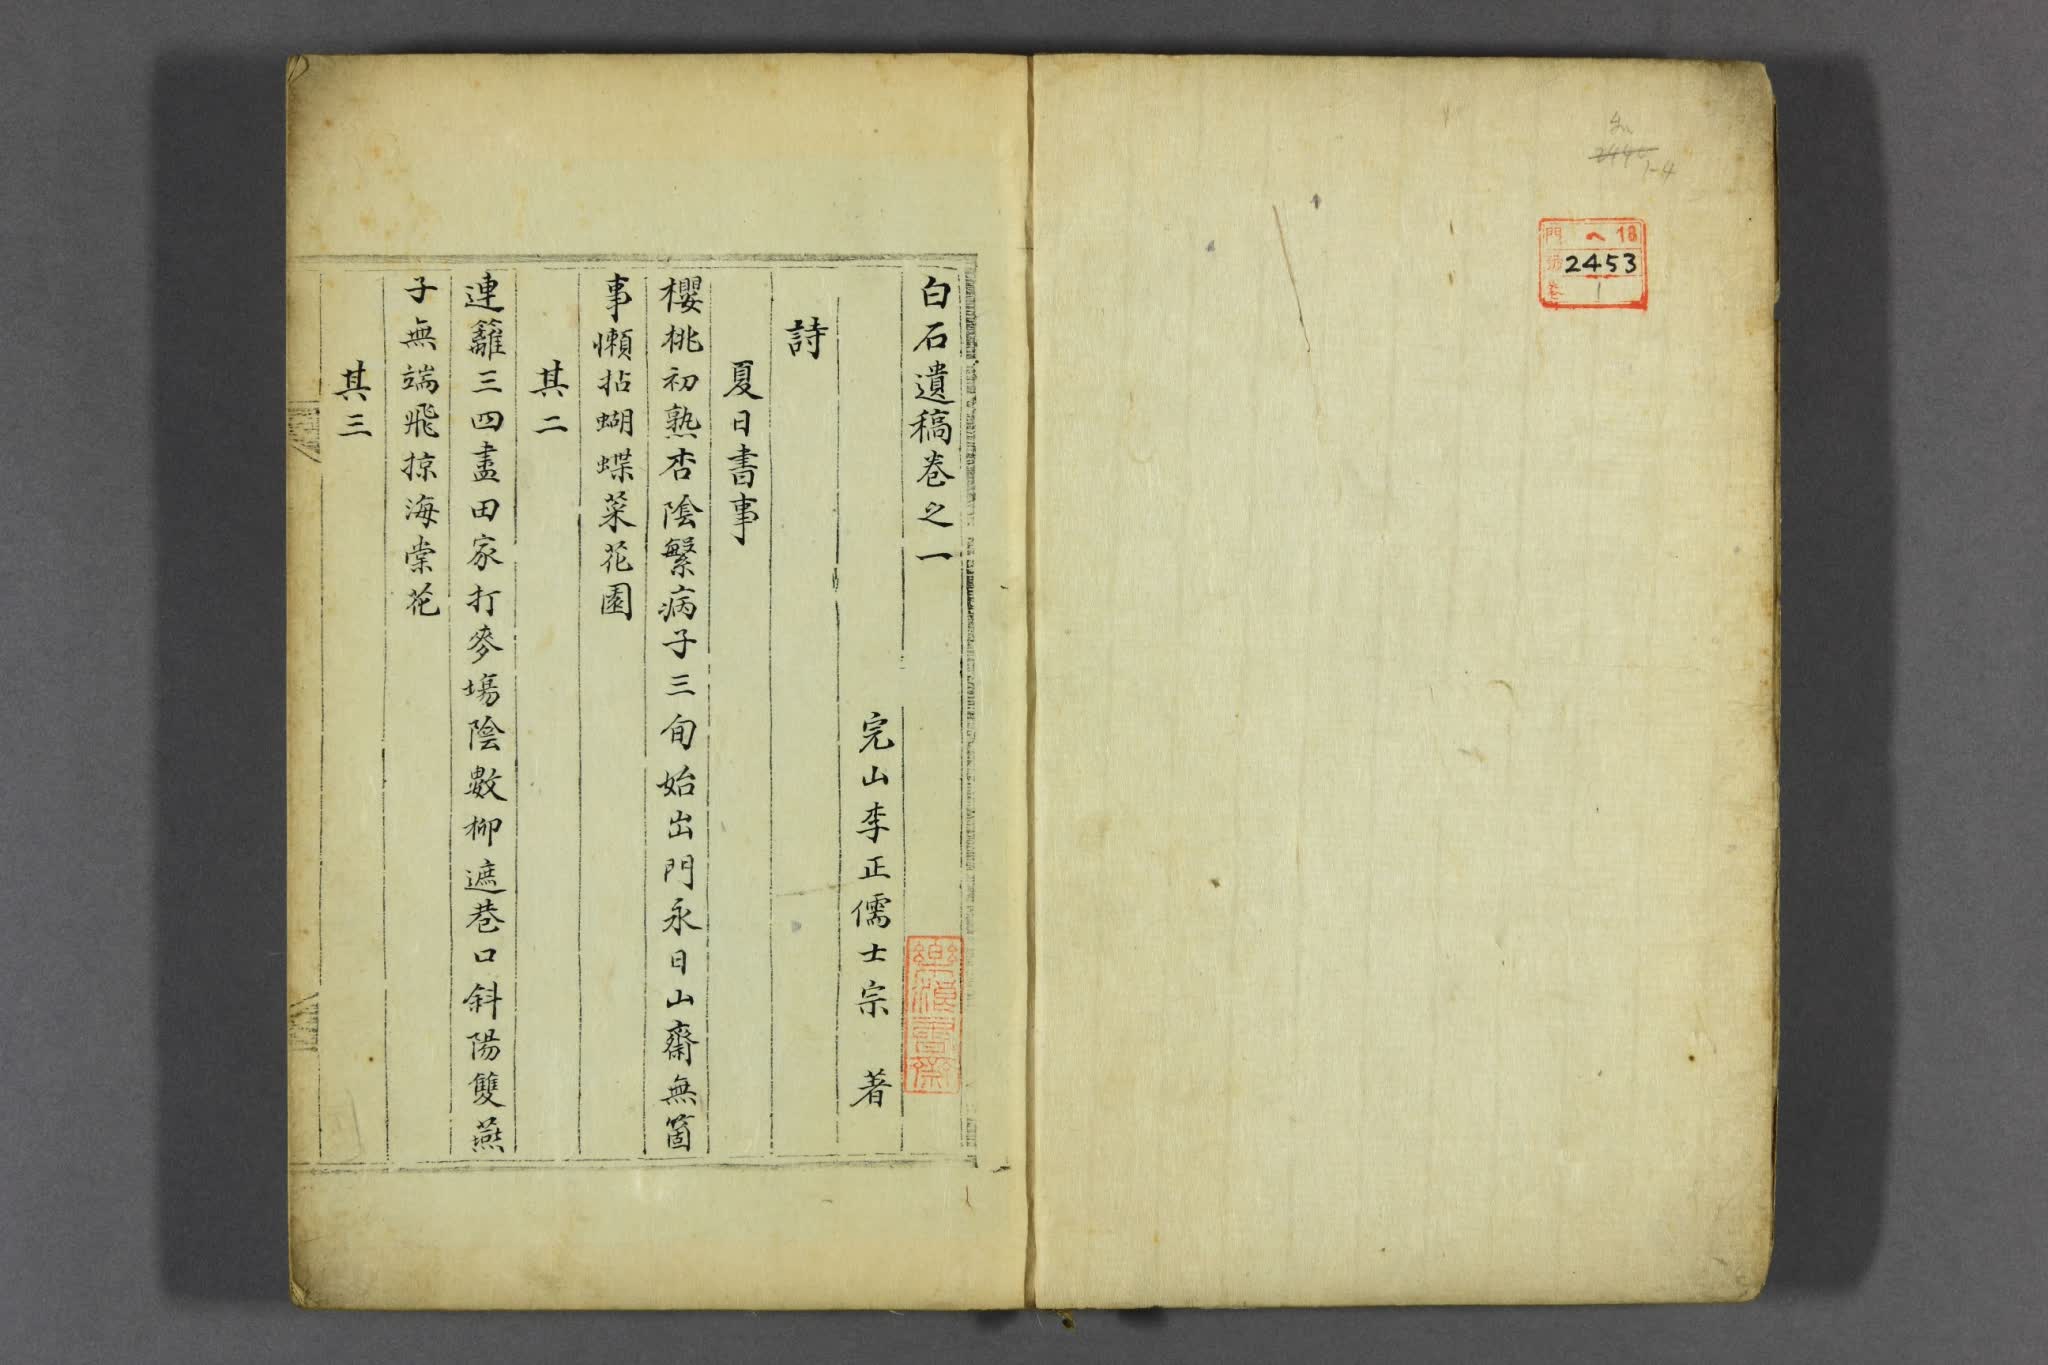 門 ヘ 18
號 2453
卷 1
1-4
白石遺稿卷之一
完山李正儒士宗 著
詩
夏日書事
櫻桃初熟杏陰繁病子三旬始出門永日山齋無箇
事懶拈蝴蝶菜花園
其二
連籬三四盡田家打麥塲陰數柳遮巷口斜陽雙燕
子無端飛掠海棠花
其三